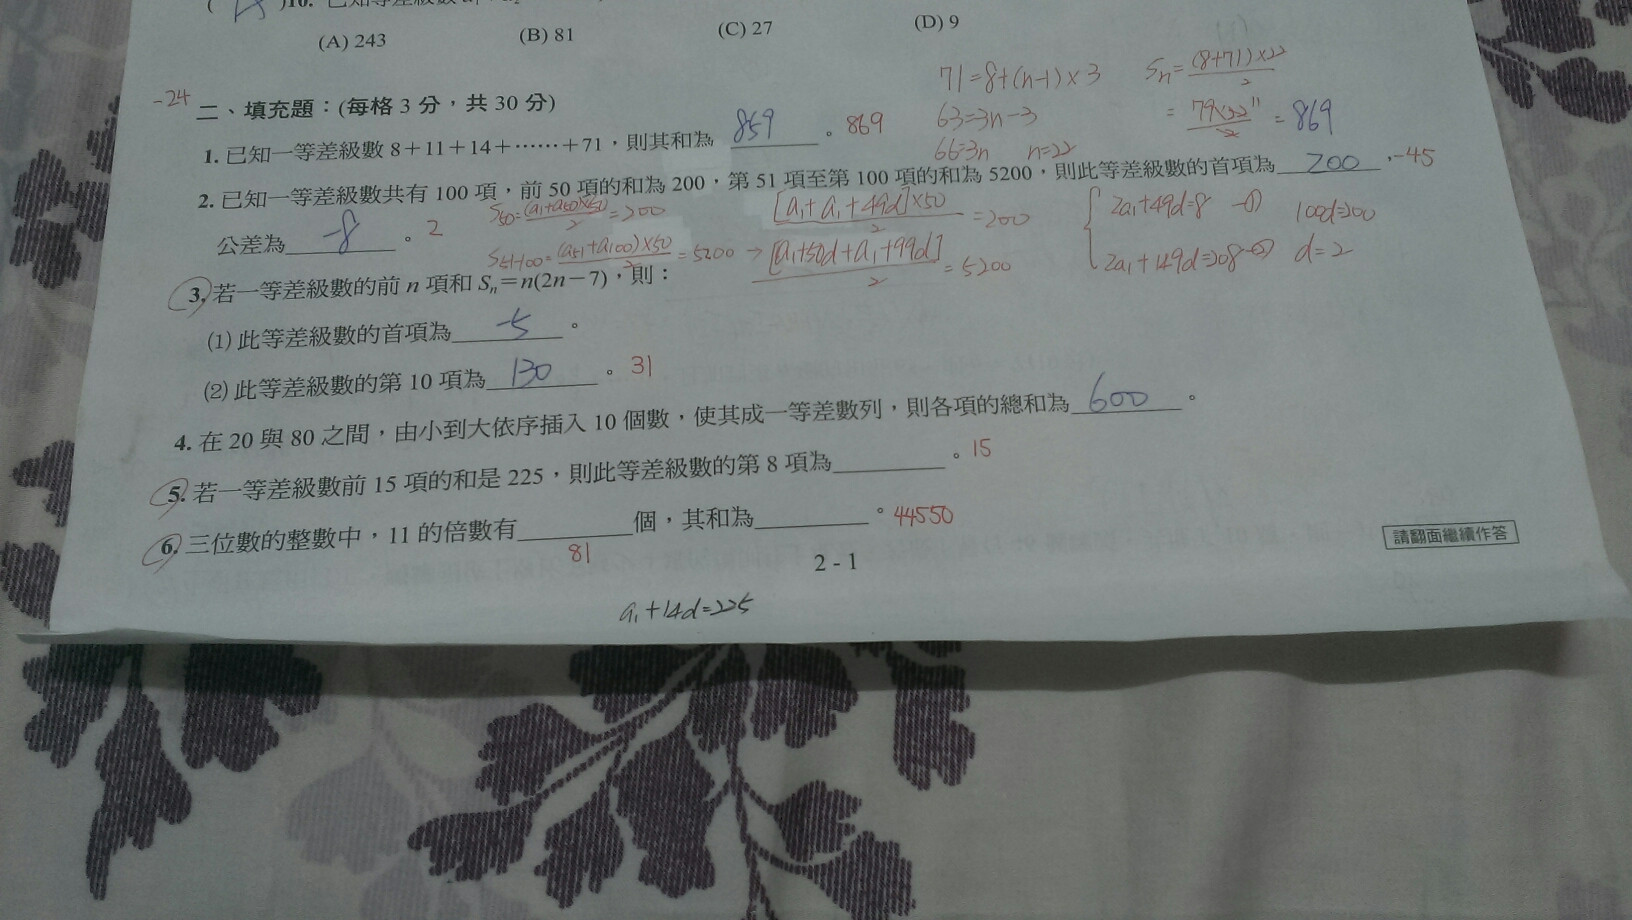 (A) 243 (B) 81 (C) 27 (D) 9
-24 二、填充題：(每格 3 分，共 30 分)
71=8+(n-1)×3 Sn=(8+71)×22/2
63=3n-3 =79×22/2 11 =869
66=3n n=22
1. 已知一等差級數 8+11+14+……+71，則其和為 859 。 869
2. 已知一等差級數共有 100 項，前 50 項的和為 200，第 51 項至第 100 項的和為 5200，則此等差級數的首項為 200 ，-45
公差為 -8 。 2
S50=(a1+a50)×50/2=200 [a1+a1+49d]×50/2=200 2a1+49d=8 -① 100d=200
S51-100=(a51+a100)×50/2=5200 → [a1+50d+a1+99d]/2=5200 2a1+149d=208-② d=2
3. 若一等差級數的前 n 項和 Sn=n(2n-7)，則：
(1) 此等差級數的首項為 -5 。
(2) 此等差級數的第 10 項為 130 。 31
4. 在 20 與 80 之間，由小到大依序插入 10 個數，使其成一等差數列，則各項的總和為 600 。
5. 若一等差級數前 15 項的和是 225，則此等差級數的第 8 項為 。 15
6. 三位數的整數中，11 的倍數有 個，其和為 。 44550
81
請翻面繼續作答
2 - 1
a1+14d=225